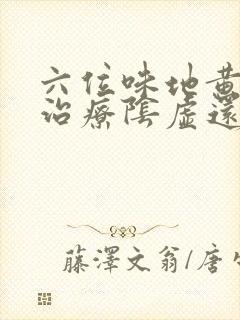 六位味地黄
治療陰虛還
藤澤文翁/唐